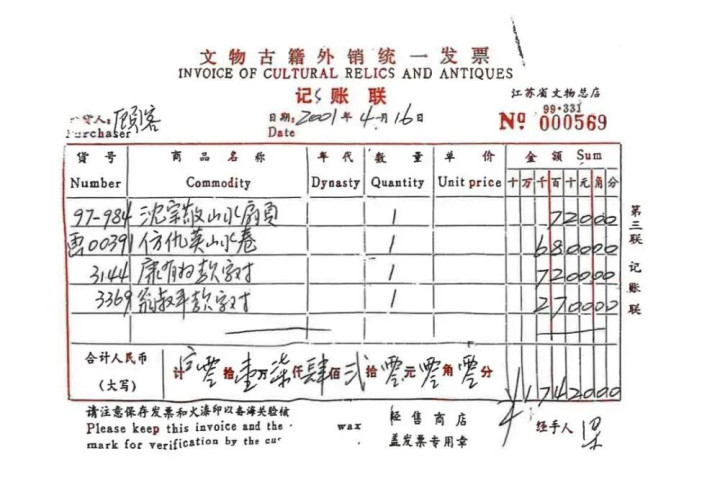 文物古籍外销统一发票
INVOICE OF CULTURAL RELICS AND ANTIQUES
记账联
江苏省文物总店
99·331
购货人: 顾客
Purchaser
日期: 2001年4月16日
Date
№ 000569
货号 商品名称 年代 数量 单价 金额 Sum
Number Commodity Dynasty Quantity Unit price 十万千百十元角分
97-984 沈宗敬山水扇页 1 72000
画00391 仿仇英山水卷 1 680000
3144 康有为款字对 1 720000
3369 翁叔平款字对 1 270000
合计人民币
(大写)
计 零拾壹万柒仟肆佰贰拾零元零角零分 ¥1742000
第三联 记账联
请注意保存发票和火漆印以备海关验核
Please keep this invoice and the
mark for verification by the cur
wax
经售商店
盖发票专用章
经手人 梁